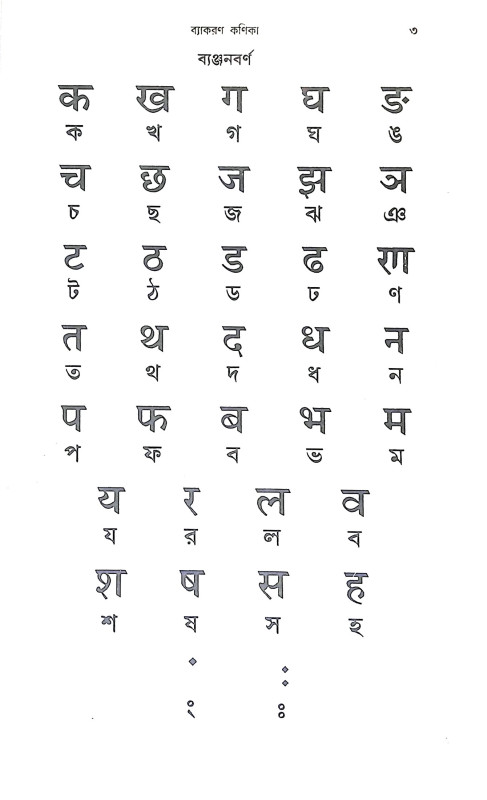 ব্যাকরণ কণিকা ৩
ব্যঞ্জনবর্ণ
क ख ग घ ङ
ক খ গ ঘ ঙ
च छ ज झ ञ
চ ছ জ ঝ ঞ
ट ठ ड ढ ण
ট ঠ ড ঢ ণ
त थ द ध न
ত থ দ ধ ন
प फ ब भ म
প ফ ব ভ ম
य र ल व
য র ল ব
श ष स ह
শ ষ স হ
ं ः
ং ঃ